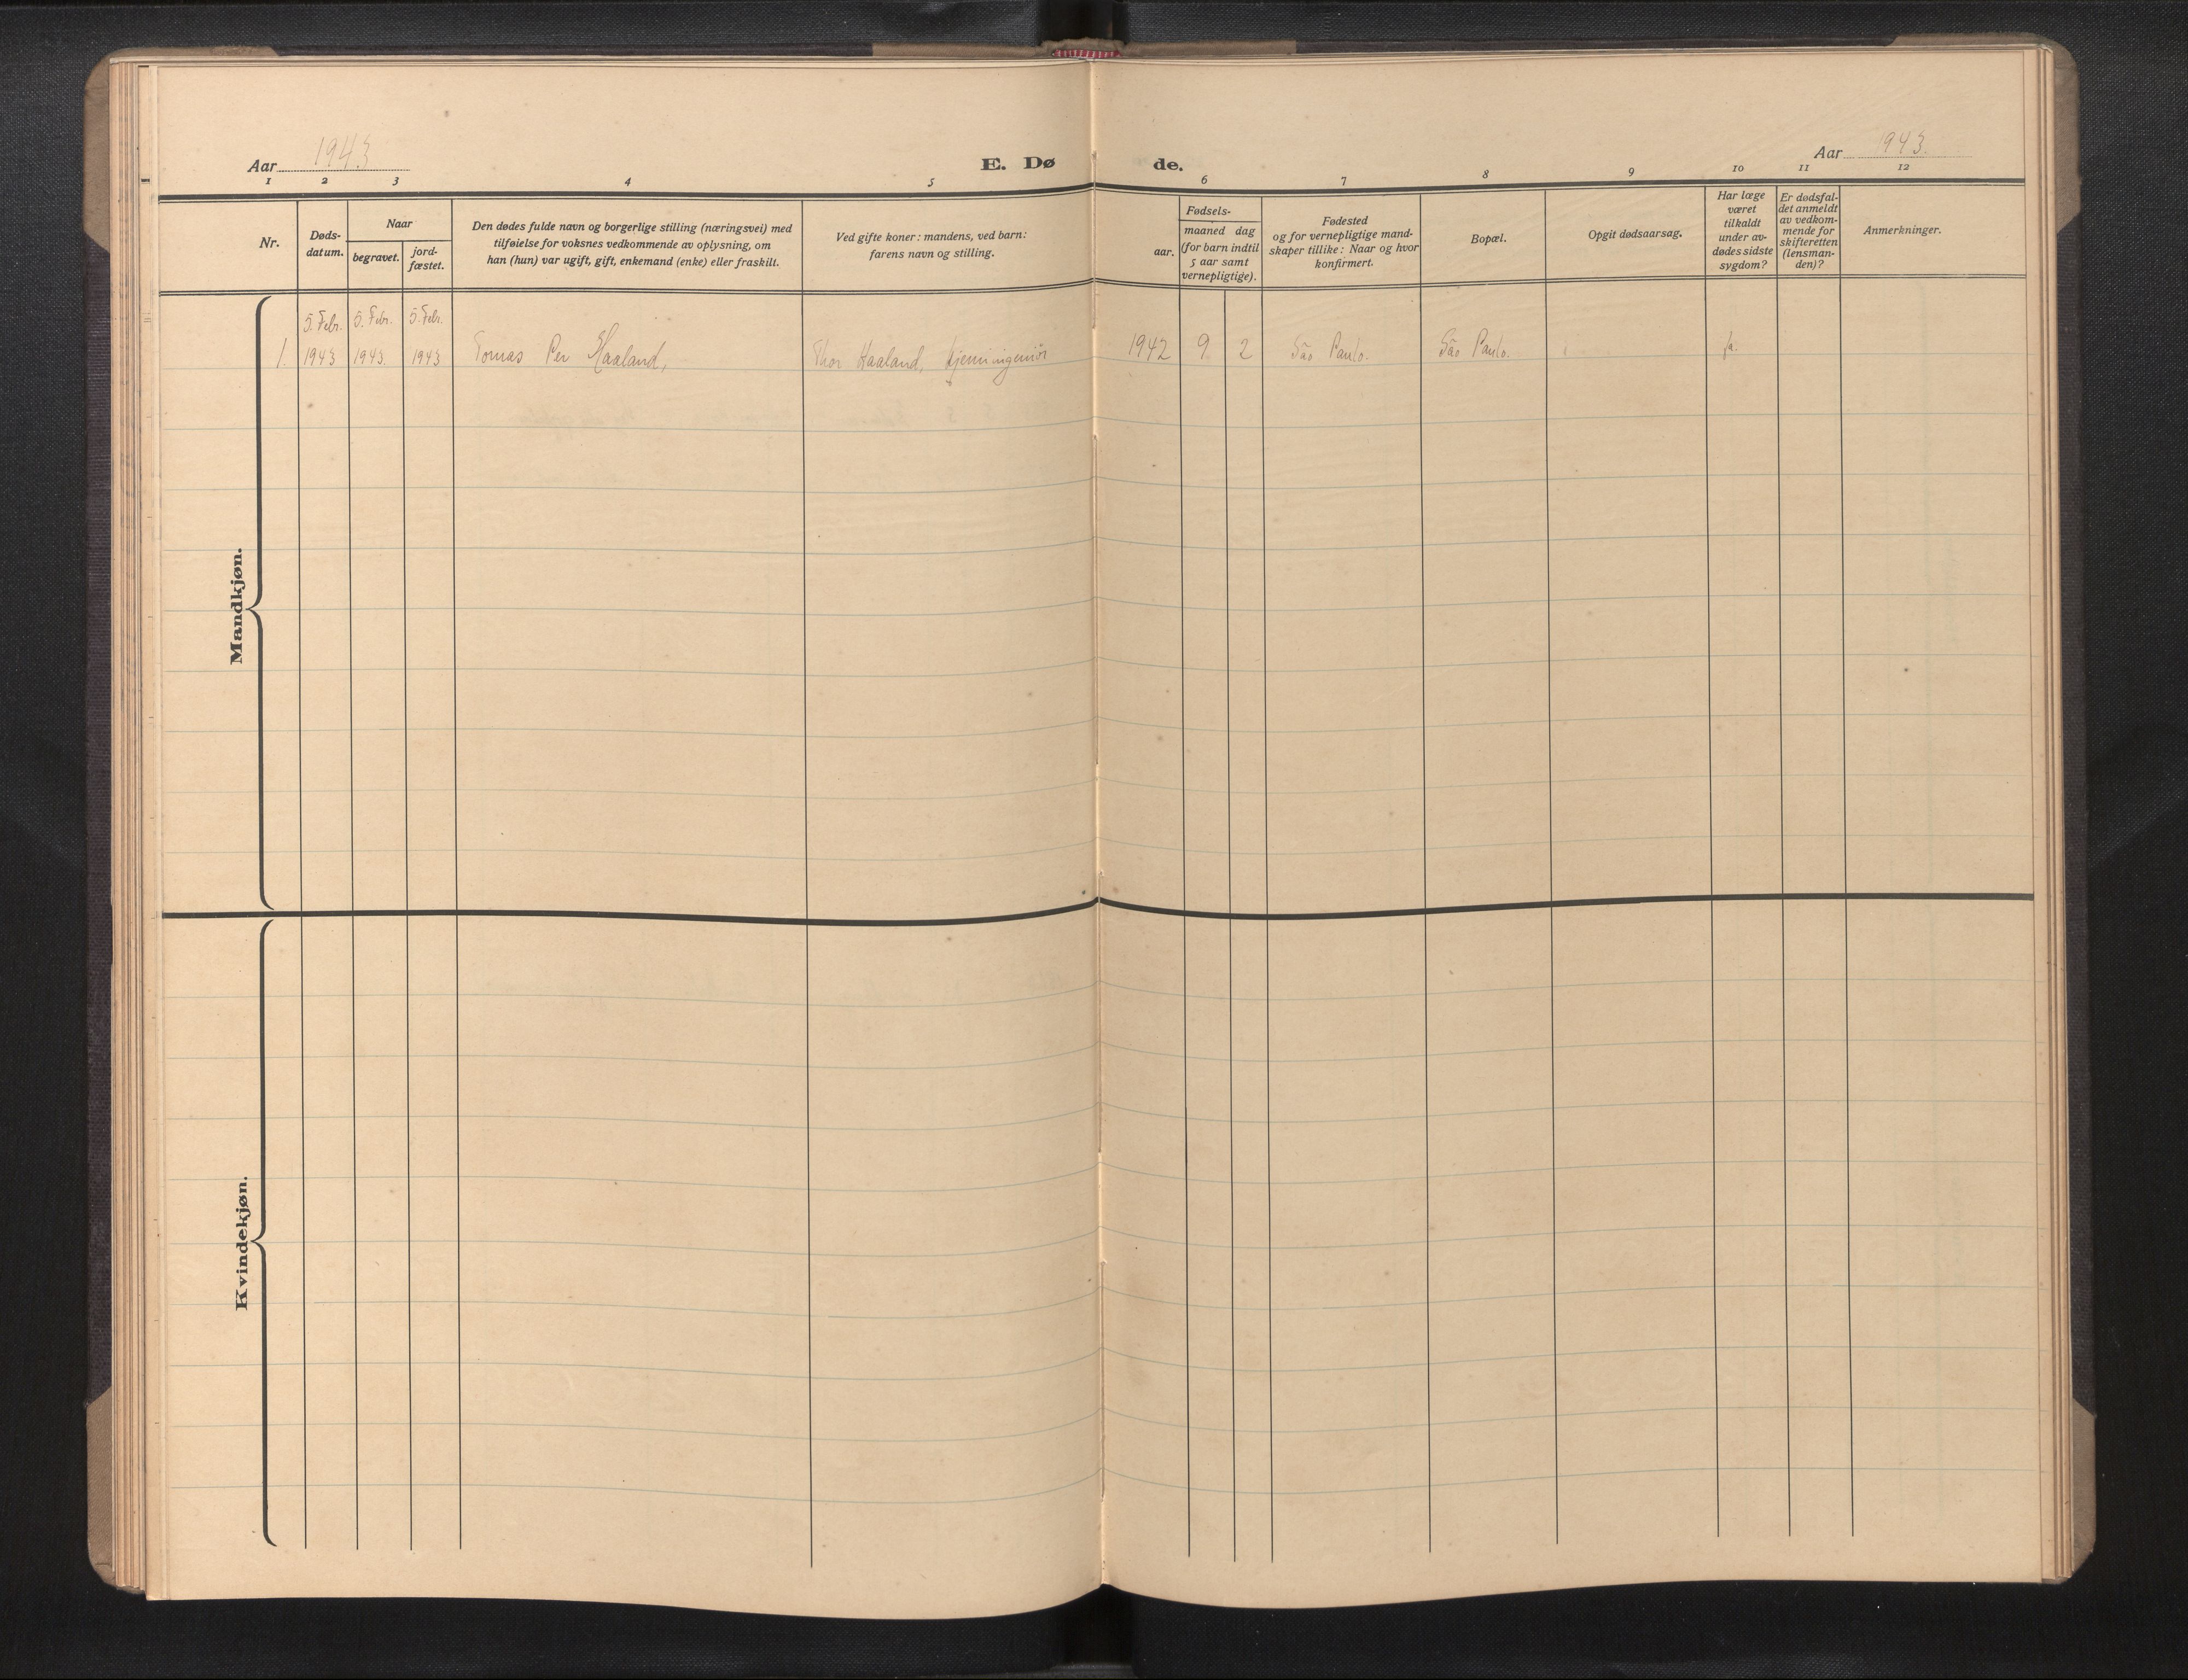 Aar 1943
E. Døde.
Aar 1943.
1 2 3 4 5 6 7 8 9 10 11 12
Nr.
Døds-
datum.
Naar
begravet.
jord-
fæstet.
Den dødes fulde navn og borgerlige stilling (næringsvei) med
tilføielse for voksnes vedkommende av oplysning, om
han (hun) var ugift, gift, enkemand (enke) eller fraskilt.
Ved gifte koner: mandens, ved barn:
farens navn og stilling.
Fødsels-
aar.
maaned dag
(for barn indtil
5 aar samt
vernepligtige).
Fødested
og for vernepligtige mand-
skaper tillike: Naar og hvor
konfirmert.
Bopæl.
Opgit dødsaarsag.
Har læge
været
tilkaldt
under av-
dødes sidste
sygdom?
Er dødsfal-
det anmeldt
av vedkom-
mende for
skifteretten
(lensman-
den)?
Anmerkninger.
Mandkjøn.
5. Febr. 5. Febr. 5. Febr.
1. 1943 1943. 1943 Tomas Per Haaland, Thor Haaland, kjemiingeniör 1942 9 2 São Paulo. São Paulo. ja.
Kvindekjøn.